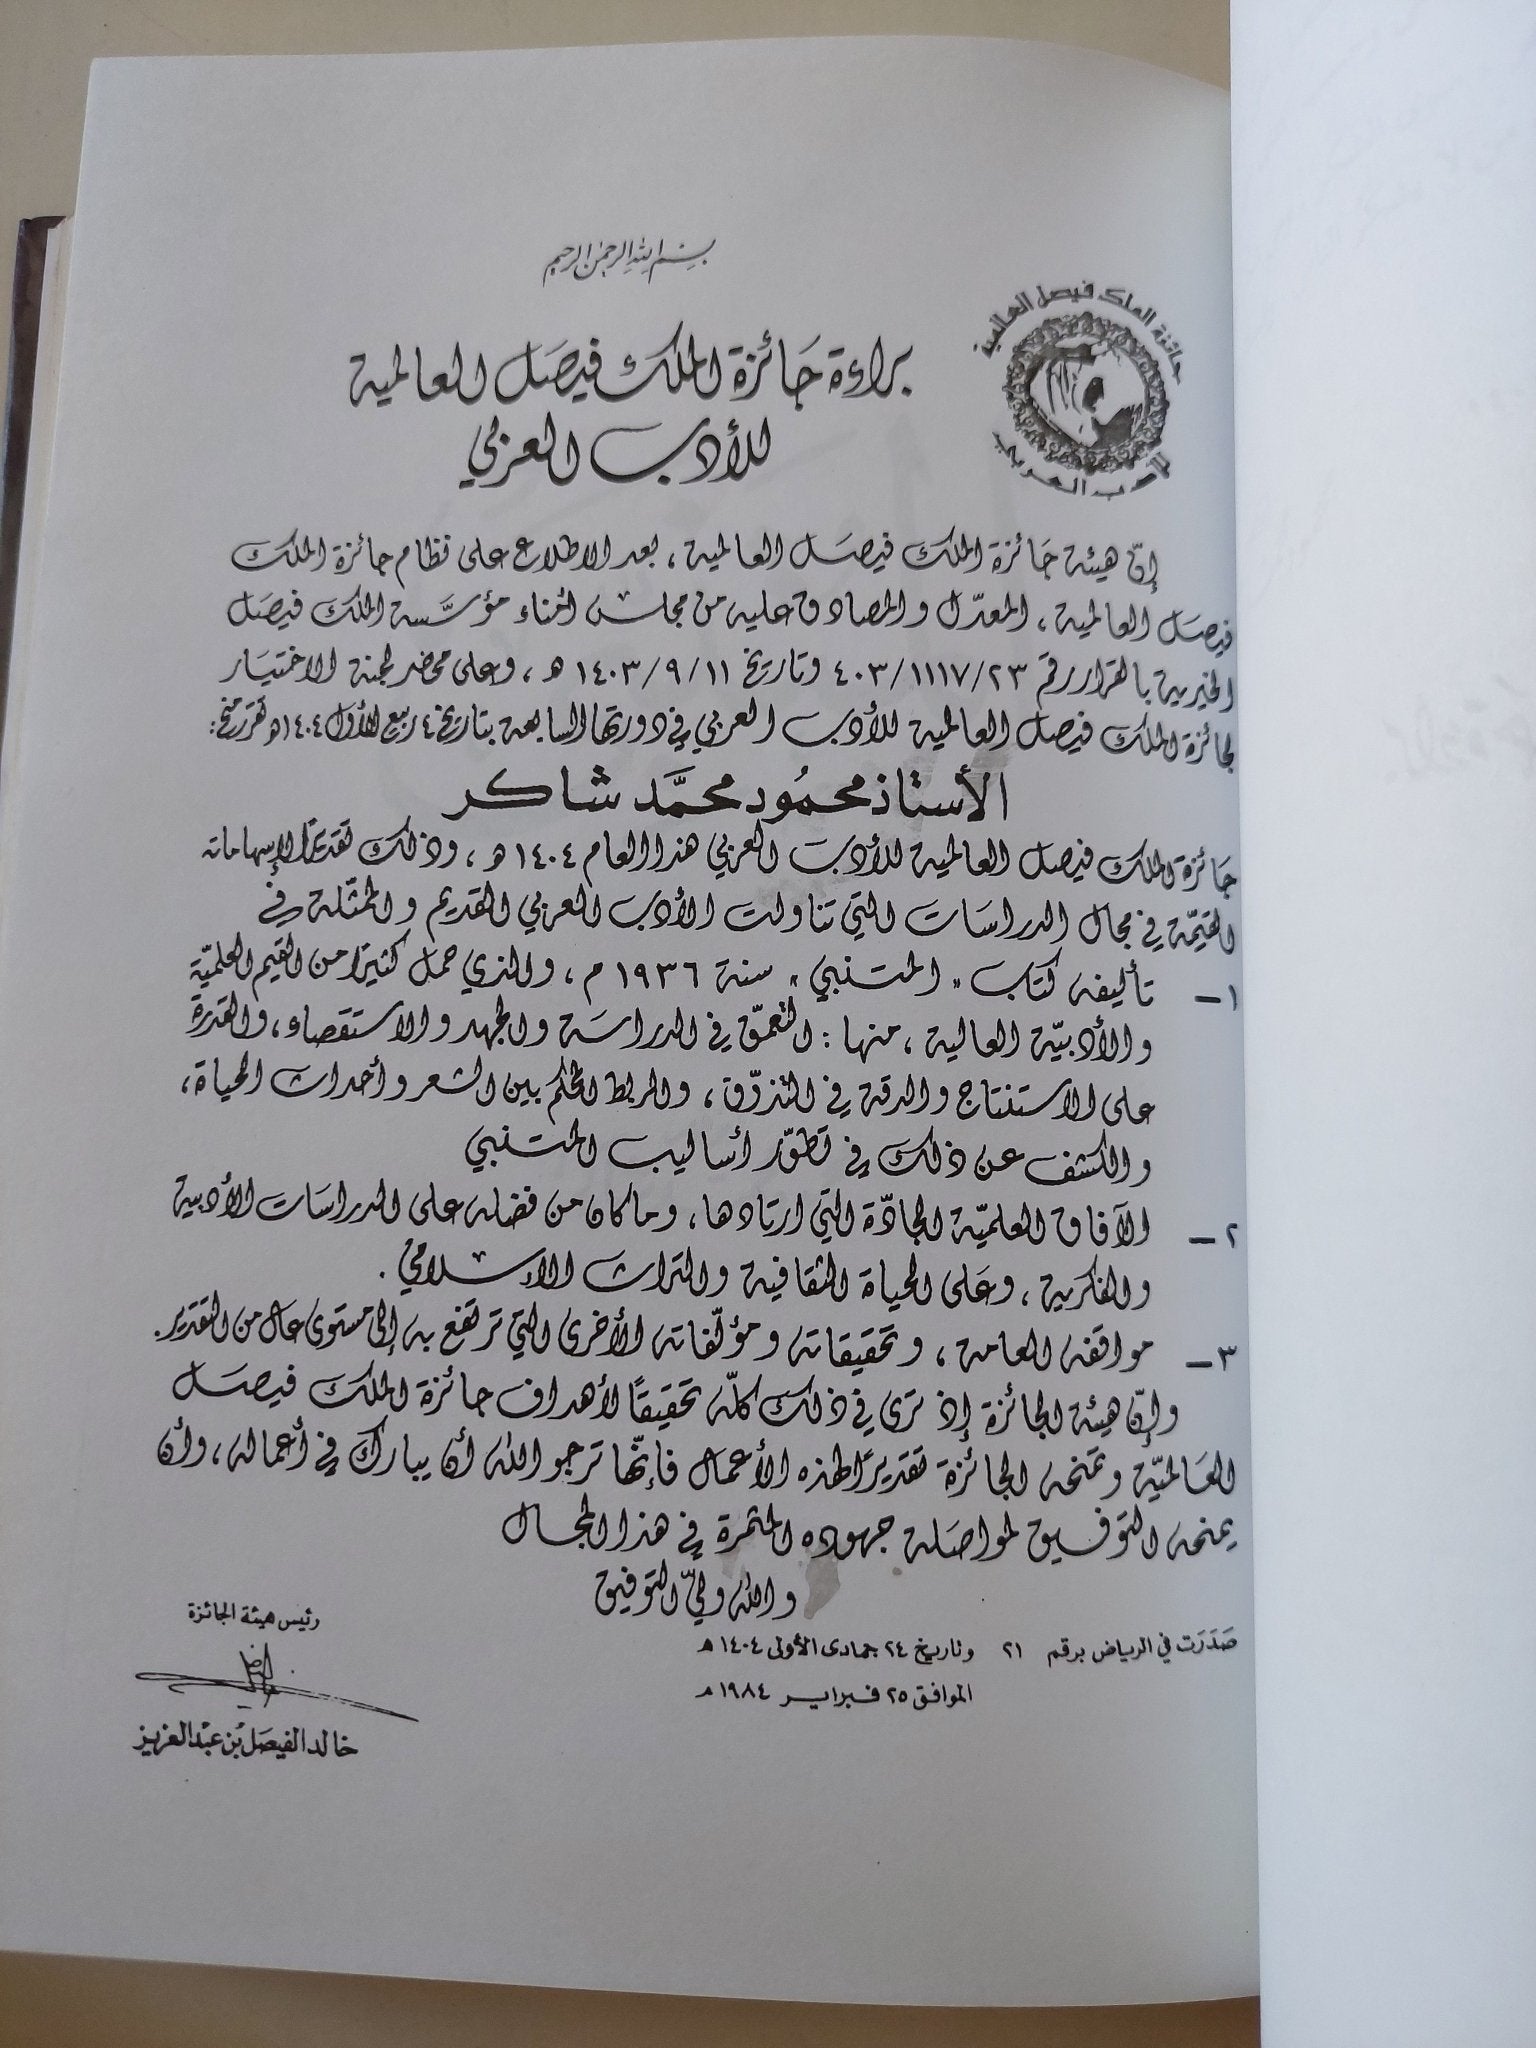 بسم الله الرحمن الرحيم
جائزة الملك فيصل العالمية
للأدب العربي
براءة جَائزة الملك فيصَل العالمية
للأدب العربي
إنّ هيئة جَائزة الملك فيصَل العالمية ، بعد الاطلاع على نظام جائزة الملك
فيصَل العالمية ، المعدّل والمصادق عليه من مجلس أمناء مؤسَّسة الملك فيصَل
الخيرية بالقرار رقم ٤٠٣/١١١٧/٢٣ وتاريخ ١٤٠٣/٩/١١ هـ ، وعلى محضر لجنة الاختيار
لجائزة الملك فيصل العالمية للأدب العربي في دورتها السابعة بتاريخ ٤ ربيع الأول ١٤٠٤هـ تقرر منح :
الأستاذ محمُود محمَّد شاكر
جَائزة الملك فيصل العالمية للأدب العربي هذا العام ١٤٠٤ هـ ، وذلك تقديرًا لإسهاماته
القيّمة في مجال الدراسَات التي تناولت الأدب العربي القديم والممثّلة في
١ – تأليفه كتاب " المتنبي " سنة ١٩٣٦ م ، والذي حمل كثيرًا من القيم العلميّة
والأدبيّة العالية ، منها : التعمّق في الدراسَة والجهد والاستقصاء ، والقدرة
على الاستنتاج والدقة في التذوّق ، والربط المحكم بين الشعر وأحداث الحياة ،
والكشف عن ذلك في تطوّر أساليب المتنبي
٢ – الآفاق العلميّة الجادّة التي ارتادها ، وما كان من فضله على الدراسَات الأدبية
والفكرية ، وعَلى الحياة الثقافية والتراث الإسلامي .
٣ – مواقفه العامة ، وتحقيقاته ومؤلّفاته الأخرى التي ترتفع به إلى مستوى عال من التقدير .
وإنّ هيئة الجائزة إذ ترى في ذلك كلّه تحقيقًا لأهداف جائزة الملك فيصَل
العَالميّة وتمنحه الجائزة تقديرًا لهذه الأعمال فإنّها ترجو الله أن يبارك في أعماله ، وأن
يمنحه التوفيق لمواصَلة جهوده المثمرة في هذا المجال
والله وليّ التوفيق
صَدَرَت في الرياض برقم ٢١ وتاريخ ٢٤ جمادى الأولى ١٤٠٤ هـ
الموافق ٢٥ فبراير ١٩٨٤ م
رئيس هيئة الجائزة
خالد الفيصَل بن عبْد العزيز